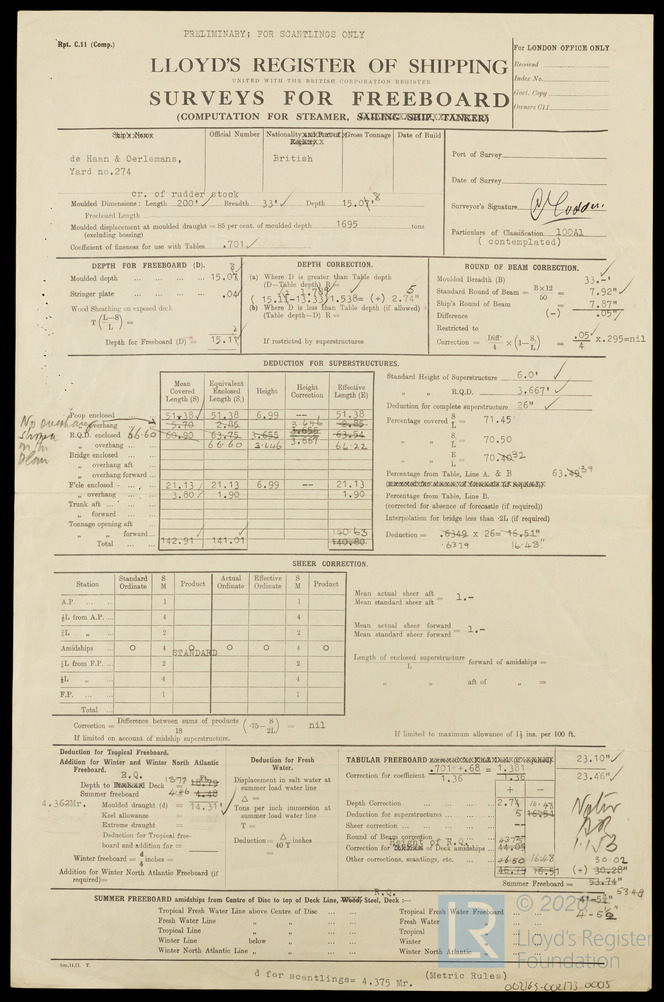 PRELIMINARY; FOR SCANTLINGS ONLY
Rpt. C.11 (Comp.)
For LONDON OFFICE ONLY
Received
Index No.
Govt. Copy
Owners C11
LLOYD'S REGISTER OF SHIPPING
UNITED WITH THE BRITISH CORPORATION REGISTER
SURVEYS FOR FREEBOARD
(COMPUTATION FOR STEAMER, SAILING SHIP, TANKER)
Ship's Name
Official Number
Nationality and Port of Registry
Gross Tonnage
Date of Build
de Haan & Oerlemans,
Yard no.274
British
Port of Survey
Date of Survey
Surveyor's Signature
Particulars of Classification 100A1
( contemplated)
cr. of rudder stock
Moulded Dimensions: Length 200' Breadth 33' Depth 15.07
Freeboard Length
Moulded displacement at moulded draught = 85 per cent. of moulded depth 1695 tons
(excluding bossing)
Coefficient of fineness for use with Tables .701
DEPTH FOR FREEBOARD (D).
Moulded depth ... 15.07
Stringer plate ... .04
Wood Sheathing on exposed deck
T (L-S/L) =
Depth for Freeboard (D) = 15.11
DEPTH CORRECTION.
(a) Where D is greater than Table depth
(D—Table depth) R =
( 15.11-13.33)1.538= (+) 2.74"
(b) Where D is less than Table depth (if allowed)
(Table depth—D) R =
If restricted by superstructures
ROUND OF BEAM CORRECTION.
Moulded Breadth (B) 33.-'
Standard Round of Beam = B×12/50 = 7.92"
Ship's Round of Beam = 7.87"
Difference (-) .05"
Restricted to
Correction = Diff/4 × (1-S/L) = .05/4 x.295=nil
DEDUCTION FOR SUPERSTRUCTURES.
Mean Covered Length (S)
Equivalent Enclosed Length (S₁)
Height
Height Correction
Effective Length (E)
Poop enclosed 51.38 51.38 6.99 -- 51.38
" overhang 5.70 2.85 2.85
R.Q.D. enclosed 66.60 60.90 63.75 3.655 63.54
" overhang 66.60 3.646 3.667 66.22
Bridge enclosed
" overhang aft
" overhang forward
F'cle enclosed 21.13 21.13 6.99 -- 21.13
" overhang 3.80 1.90 1.90
Trunk aft
" forward
Tonnage opening aft
" " forward
Total 142.91 141.01 140.63 140.80
No overhang
shown
on the
plan
Standard Height of Superstructure 6.0'
" " R.Q.D. 3.667'
Deduction for complete superstructure 26"
Percentage covered S/L = 71.45
" " S₁/L = 70.50
" " E/L = 70.4032
Percentage from Table, Line A. & B 63.39
Percentage from Table, Line B.
(corrected for absence of forecastle (if required))
Interpolation for bridge less than .2L (if required)
Deduction = .6349 x 26= 16.51"
.6339 16.48"
SHEER CORRECTION.
Station
Standard Ordinate
S M
Product
Actual Ordinate
Effective Ordinate
S M
Product
A.P. 1 1
⅙L from A.P. 4 4
⅓L " 2 2
Amidships O 4 O O O 4 O
STANDARD
⅓L from F.P. 2 2
⅙L " 4 4
F.P. 1 1
Total
Mean actual sheer aft
Mean standard sheer aft = 1.-
Mean actual sheer forward
Mean standard sheer forward = 1.-
Length of enclosed superstructure/L forward of amidships =
" " aft of " =
Correction = Difference between sums of products/18 (.75-S/2L) = nil
If limited on account of midship superstructure.
If limited to maximum allowance of 1½ ins. per 100 ft.
Deduction for Tropical Freeboard.
Addition for Winter and Winter North Atlantic Freeboard.
R.Q. Ft.
Depth to Deck = 18.77 18.79
Summer freeboard = 4.46 4.48
4.362Mr. Moulded draught (d) = 14.31
Keel allowance =
Extreme draught =
Deduction for Tropical freeboard and addition for =
Winter freeboard = d/4 inches =
Addition for Winter North Atlantic Freeboard (if required)=
Deduction for Fresh Water.
Displacement in salt water at summer load water line
Δ =
Tons per inch immersion at summer load water line
T =
Deduction = Δ/40 T inches
TABULAR FREEBOARD 23.10"
Correction for coefficient .701+.68 = 1.381 / 1.36 1.36 23.46"
+ -
Depth Correction 2.74 16.48
Deduction for superstructures 16.51
Sheer correction --
Round of Beam correction --
Correction for Height of R.Q. Deck amidships 44.05
Other corrections, scantlings, etc. 30.02
46.50 16.48
46.79 16.51 (+) 30.28"
Summer Freeboard = 53.74"
53.48
SUMMER FREEBOARD amidships from Centre of Disc to top of Deck Line, Wood, Steel, Deck :— R.Q.
Tropical Fresh Water Line above Centre of Disc
Fresh Water Line " "
Tropical Line " "
Winter Line below "
Winter North Atlantic Line " "
Tropical Fresh Water Freeboard
Fresh Water "
Tropical "
Winter "
Winter North Atlantic "
d for scantlings= 4.375 Mr. (Metric Rules)
002165-002173-0005
LR
© 2020
Lloyd's Register
Foundation